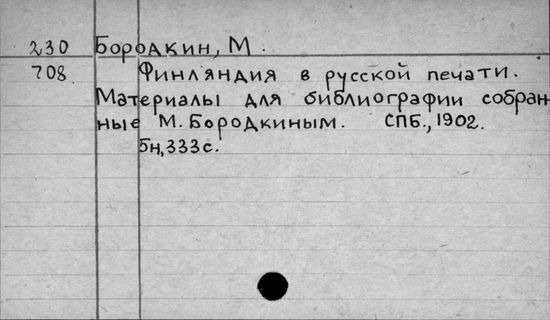 230 Бородкин, М.
708. Финляндия в русской печати.
Материалы для библиографии собран-
ные М. Бородкиным. СПБ., 1902.
5н, 333 с.